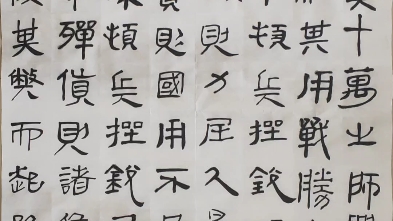 十萬之師
其用戰勝
頓兵挫銳
則力屈久
則國用不
頓兵挫銳
殫貨則諸
其弊而起